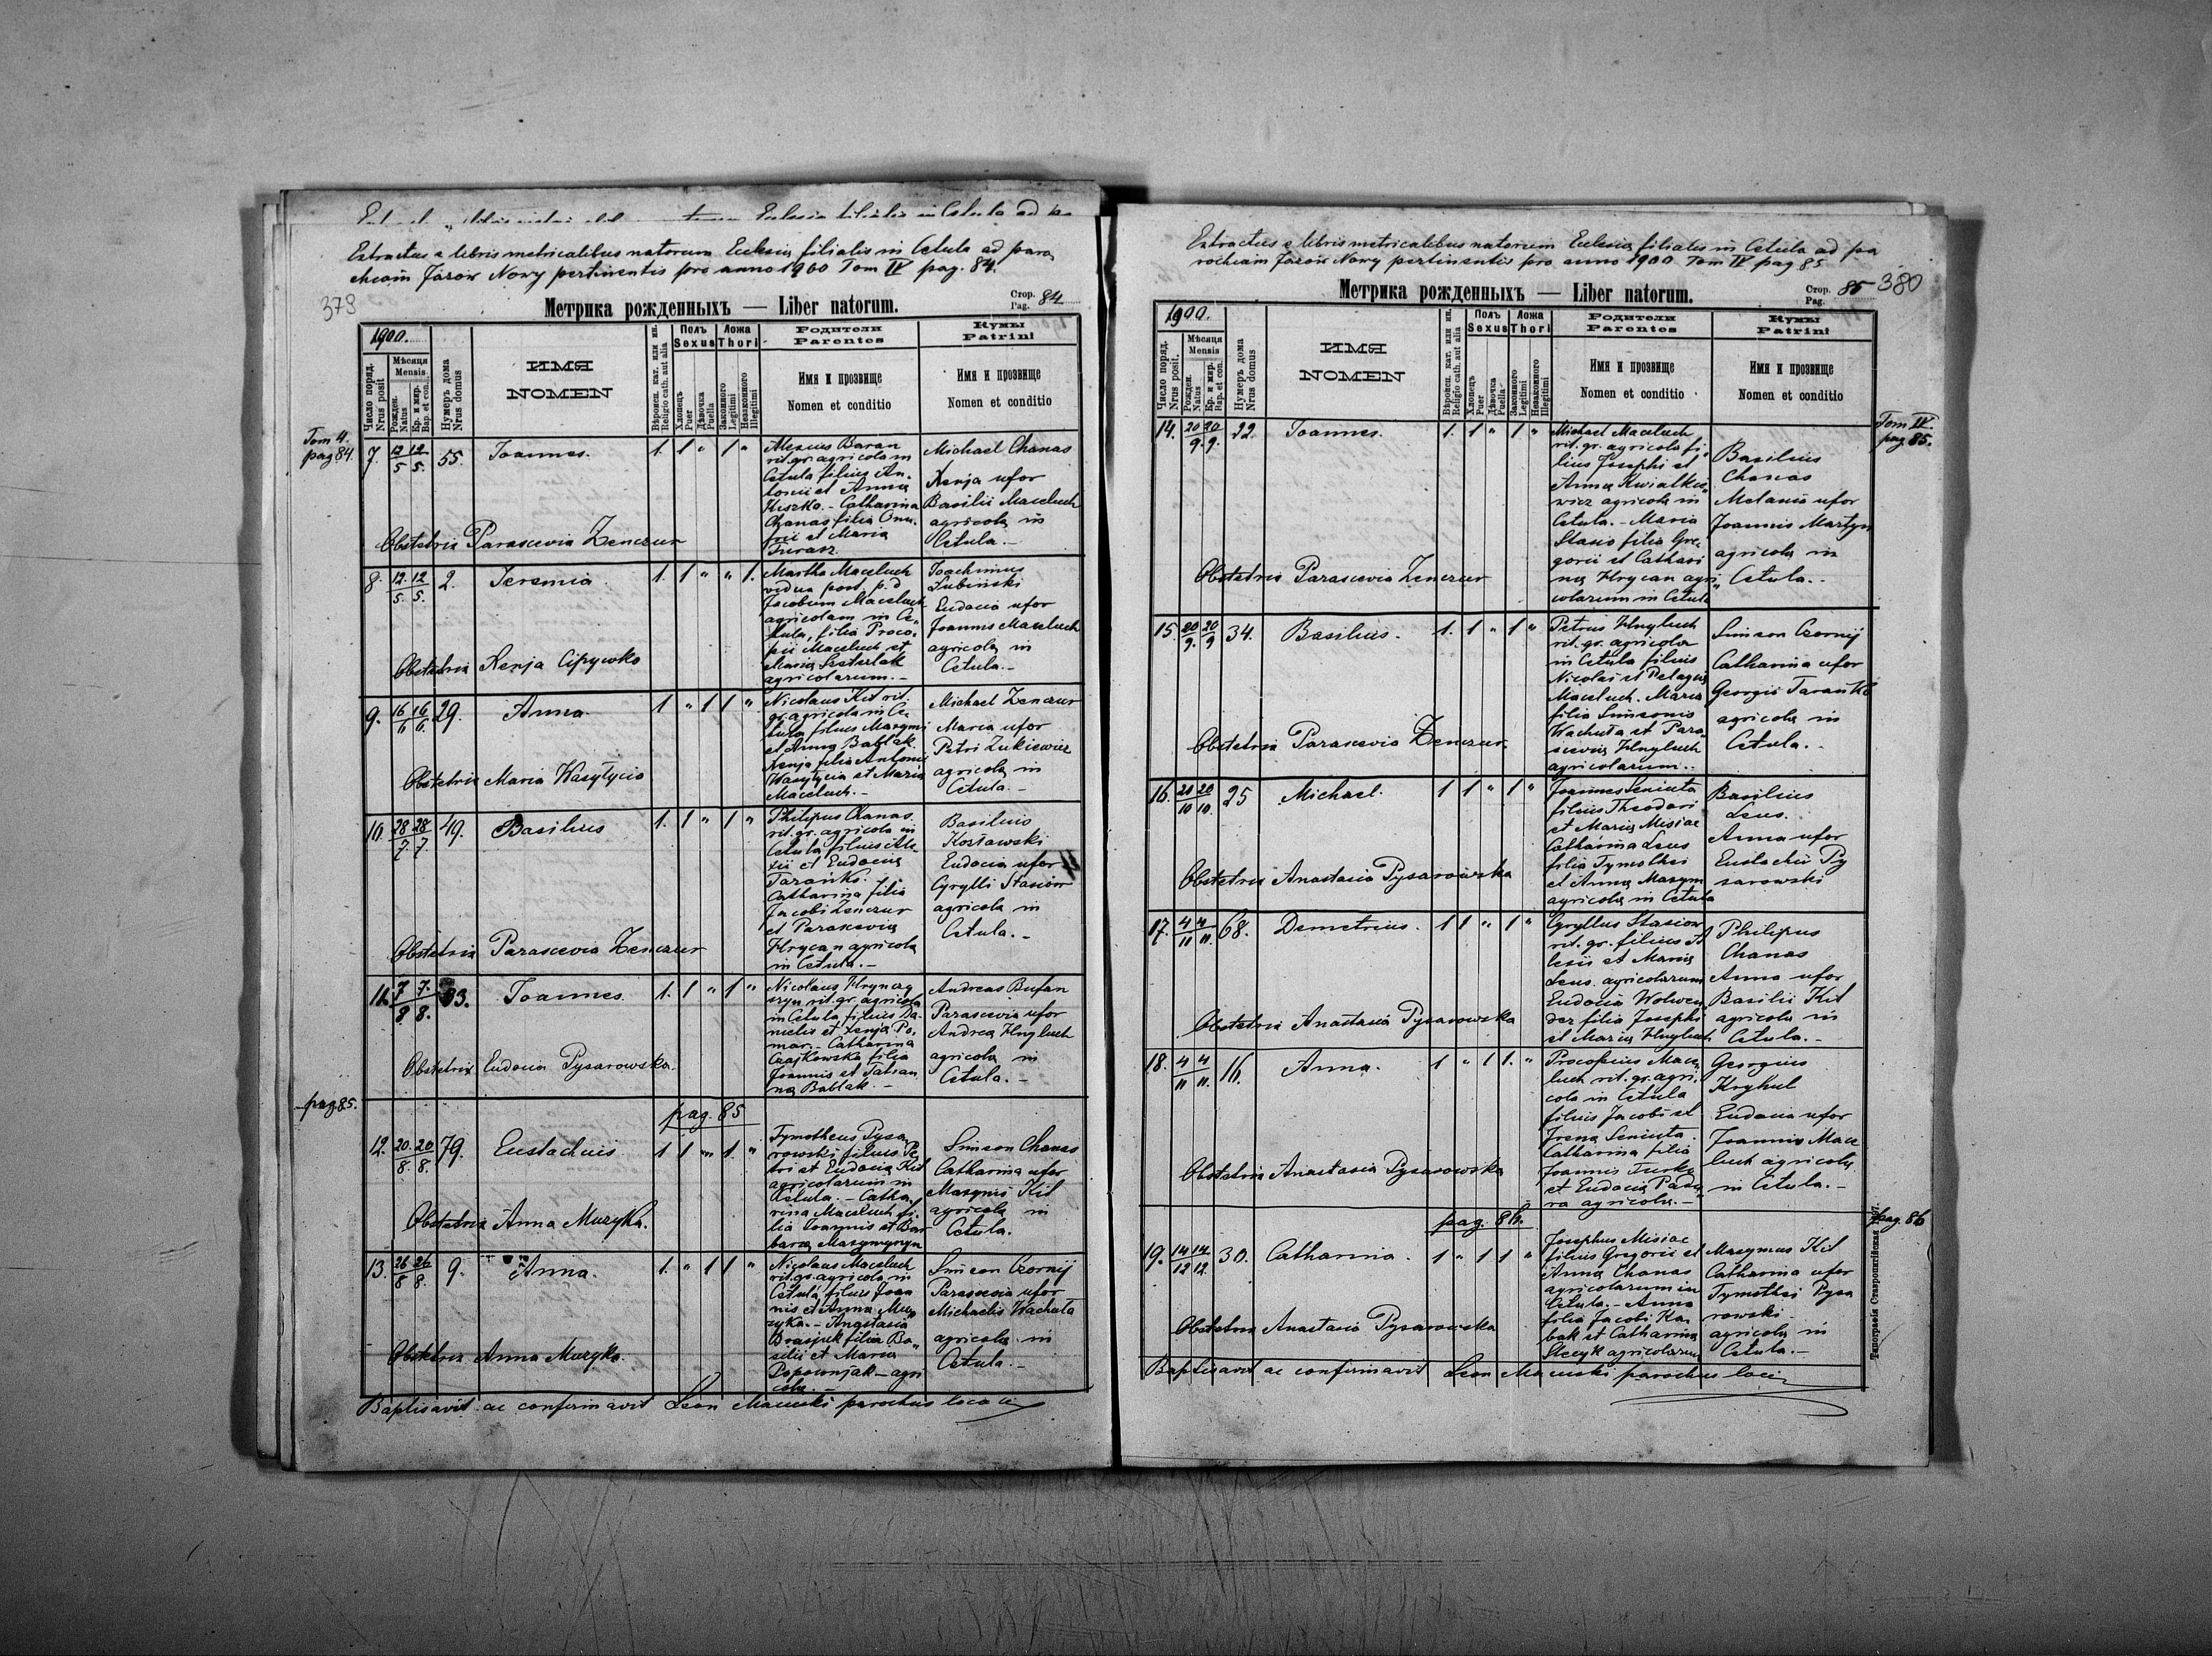 Extractus e libris metricalibus natorum Ecclesiae filialis in Cetula ad paro
chiam Jazów Nowy pertinentis pro anno 1900 Tom IV pag. 84.
379
Метрика рожденныхъ — Liber natorum.
Стор.
Pag. 84
1900.
Число поряд.
Nrus posit
Мѣсяця
Mensis
Рожден.
Natus
Кр. и мир.
Bap. et con.
Нумеръ дома
Nrus domus
ИМЯ
NOMEN
Вѣроисп. кат. или ин.
Religio cath. aut alia
Полъ
Sexus
Хлопецъ
Puer
Дѣвочка
Puella
Ложа
Thori
Законного
Legitimi
Незаконного
Illegitimi
Родители
Parentes
Имя и прозвище
Nomen et conditio
Кумы
Patrini
Имя и прозвище
Nomen et conditio
Tom 4.
pag 84.
7. 12/5 12/5. 55. Joannes. 1. 1 " 1 "
Alexius Baran
rit. gr. agricola in
Cetula filius An-
tonii et Anna
Kiszko. - Catharina
Chanas filia Onu-
frii et Maria
Turasz.
Michael Chanas
Xenja uxor
Basilii Maceluch
agricola in
Cetula. -
Obstetrix Parascevia Zenczur
8. 12./5. 12/5. 2. Jeremia. 1. 1 " " 1.
Martha Maceluch
vidua post. p.d
Jacobum Maceluch
agricolam in Ce-
tula, filia Proco-
pii Maceluch et
Maria
agricolarum. -
Joachimus
Lubinski
Eudocia uxor
Joannis Maceluch
agricola in
Cetula. -
Obstetrix Xenja Cipywko
9. 16/6 16/6. 29. Anna. 1 " 1 1 "
Nicolaus Kit rit.
gr. agricola in Ce-
tula filius Maxymi
et Anna Bablak.
Xenja filia Antonii
Wasylycia et Maria
Maceluch. -
Michael Zenczur
Maria uxor
Petri Zukiewicz
agricola in
Cetula. -
Obstetrix Maria Wasylycia
10. 28/7 28/7. 49. Basilius 1. 1 " 1 "
Philipus Chanas.
rit. gr. agricola in
Cetula filius Ale-
xii et Eudocia
Tarańko.
Catharina filia
Jacobi Zenczur
et Parascevia
Hrycan agricola
in Cetula. -
Basilius
Kozlawski
Eudocia uxor
Cyrylli Stasiow
agricola in
Cetula. -
Obstetrix Parascevia Zenczur
11. 7/8 7./8. 33. Joannes. 1. 1 " 1 "
Nicolaus Hryncy
szyn rit. gr. agricola
in Cetula filius Da-
nielis et Xenja Po-
mar. - Catharina
Czajkowska filia
Joannis et Tatian
na Bablak. -
Andreas Bufan
Parascevia uxor
Andrea Hnyluch
agricola in
Cetula. -
Obstetrix Eudocia Pysarowska.
pag. 85.
pag. 85
12. 20./8. 20/8. 79. Eustachius. 1 1 " 1. "
Tymotheus Pysa
rowski filius Pe
tri et Eudocia Kit
agricolarum in
Cetula. - Catha
rina Maceluch fi-
lia Joannis et Bar
bara Maxymyszyn
Simeon Chanas
Catharina uxor
Maxymi Kit
agricola in
Cetula.
Obstetrix Anna Muzyka.
13. 26/8 26/8. 9. Anna. 1. " 1 1 "
Nicolaus Maceluch
rit. gr. agricola in
Cetula, filius Joan
nis et Anna Mu-
zyka. - Anastasia
Drasjuk filia Ba-
silii et Maria
Popownjak - agri
cola. -
Simeon Czornij
Parascevia uxor
Michaelis Wachuta
agricola in
Cetula. -
Obstetrix Anna Muzyka.
Baptisavit ac confirmavit Leon Macuski parochus loci
Extractus e libris metricalibus natorum Ecclesia filialis in Cetula ad pa
rochiam Jazów Nowy pertinentis pro anno 1900 Tom IV pag 85
Метрика рожденныхъ — Liber natorum.
Стор.
Pag. 85 380
1900.
Число поряд.
Nrus posit.
Мѣсяця
Mensis
Рожден.
Natus
Кр. и мир.
Bap. et con.
Нумеръ дома
Nrus domus
ИМЯ
NOMEN
Вѣроисп. кат. или ин.
Religio cath. aut alia
Полъ
Sexus
Хлопецъ
Puer
Дѣвочка
Puella
Ложа
Thori
Законного
Legitimi
Незаконного
Illegitimi
Родители
Parentes
Имя и прозвище
Nomen et conditio
Кумы
Patrini
Имя и прозвище
Nomen et conditio
Tom IV
pag 85.
14. 20/9. 20/9. 22. Joannes. 1. 1 " 1 "
Michael Maceluch
rit. gr. agricola fi-
lius Josephi et
Anna Kwiatko-
wicz agricola in
Cetula. - Maria
Stasio filia Gre-
gorii et Cathari
na Hrycan agri-
colarum in Cetula
Basilius
Chanas
Melania uxor
Joannis Martyn
agricola in
Cetula. -
Obstetrix Parascevia Zenczur
15. 20/9. 20/9 34. Basilius. 1. 1 " 1 "
Petrus Hnyluch
rit. gr. agricola
in Cetula filius
Nicolai et Pelagia
Maceluch. Maria
filia Simeonis
Wachuta et Para
scevia Hnyluch
agricolarum. -
Simeon Czornij
Catharina uxor
Georgii Tarańko
agricola in
Cetula. -
Obstetrix Parascevia Zenczur
16. 20/10 20/10. 25 Michael. 1 1 " 1 "
Joannes Seniuta
filius Theodori
et Maria Misiac
Catharina Leus
filia Tymothei
et Anna Maxym
agricola in Cetula
Basilius
Leus.
Anna uxor
Eustachii Py
sarowski
Obstetrix Anastasia Pysarowska
17. 4/11 4/11. 68. Demetrius. 1 1 " 1 "
Cyryllus Stasiow
rit. gr. filius A
lexii et Maria
Leus. agricolarum
Eudocia Wolwen
der filia Josephi
et Maria Hnyluch
Philipus
Chanas
Anna uxor
Basilii Kit
agricola in
Cetula. -
Obstetrix Anastasia Pysarowska
18. 4/11 4/11. 16. Anna. 1 " 1 1. "
Procopius Mace
luch rit. gr. agri-
cola in Cetula
filius Jacobi et
Irena Seniuta.
Catharina filia
Joannis Turko
et Eudocia Padu
ra agricola. -
Georgius
Kryhul
Eudocia uxor
Joannis Mace
luch agricola
in Cetula. -
Obstetrix Anastasia Pysarowska
pag. 86.
pag. 86
19. 14/12 14/12. 30. Catharina. 1 " 1 1 "
Josephus Misiac
filius Gregorii et
Anna Chanas
agricolarum in
Cetula. - Anna
filia Jacobi Ka-
bak et Catharina
agricolarum
Maxymus Kit
Catharina uxor
Tymothei Pysa
rowski
agricola in
Cetula. -
Obstetrix Anastasia Pysarowska
Baptisavit ac confirmavit Leon Macuski parochus loci
Типографія Ставропигійская